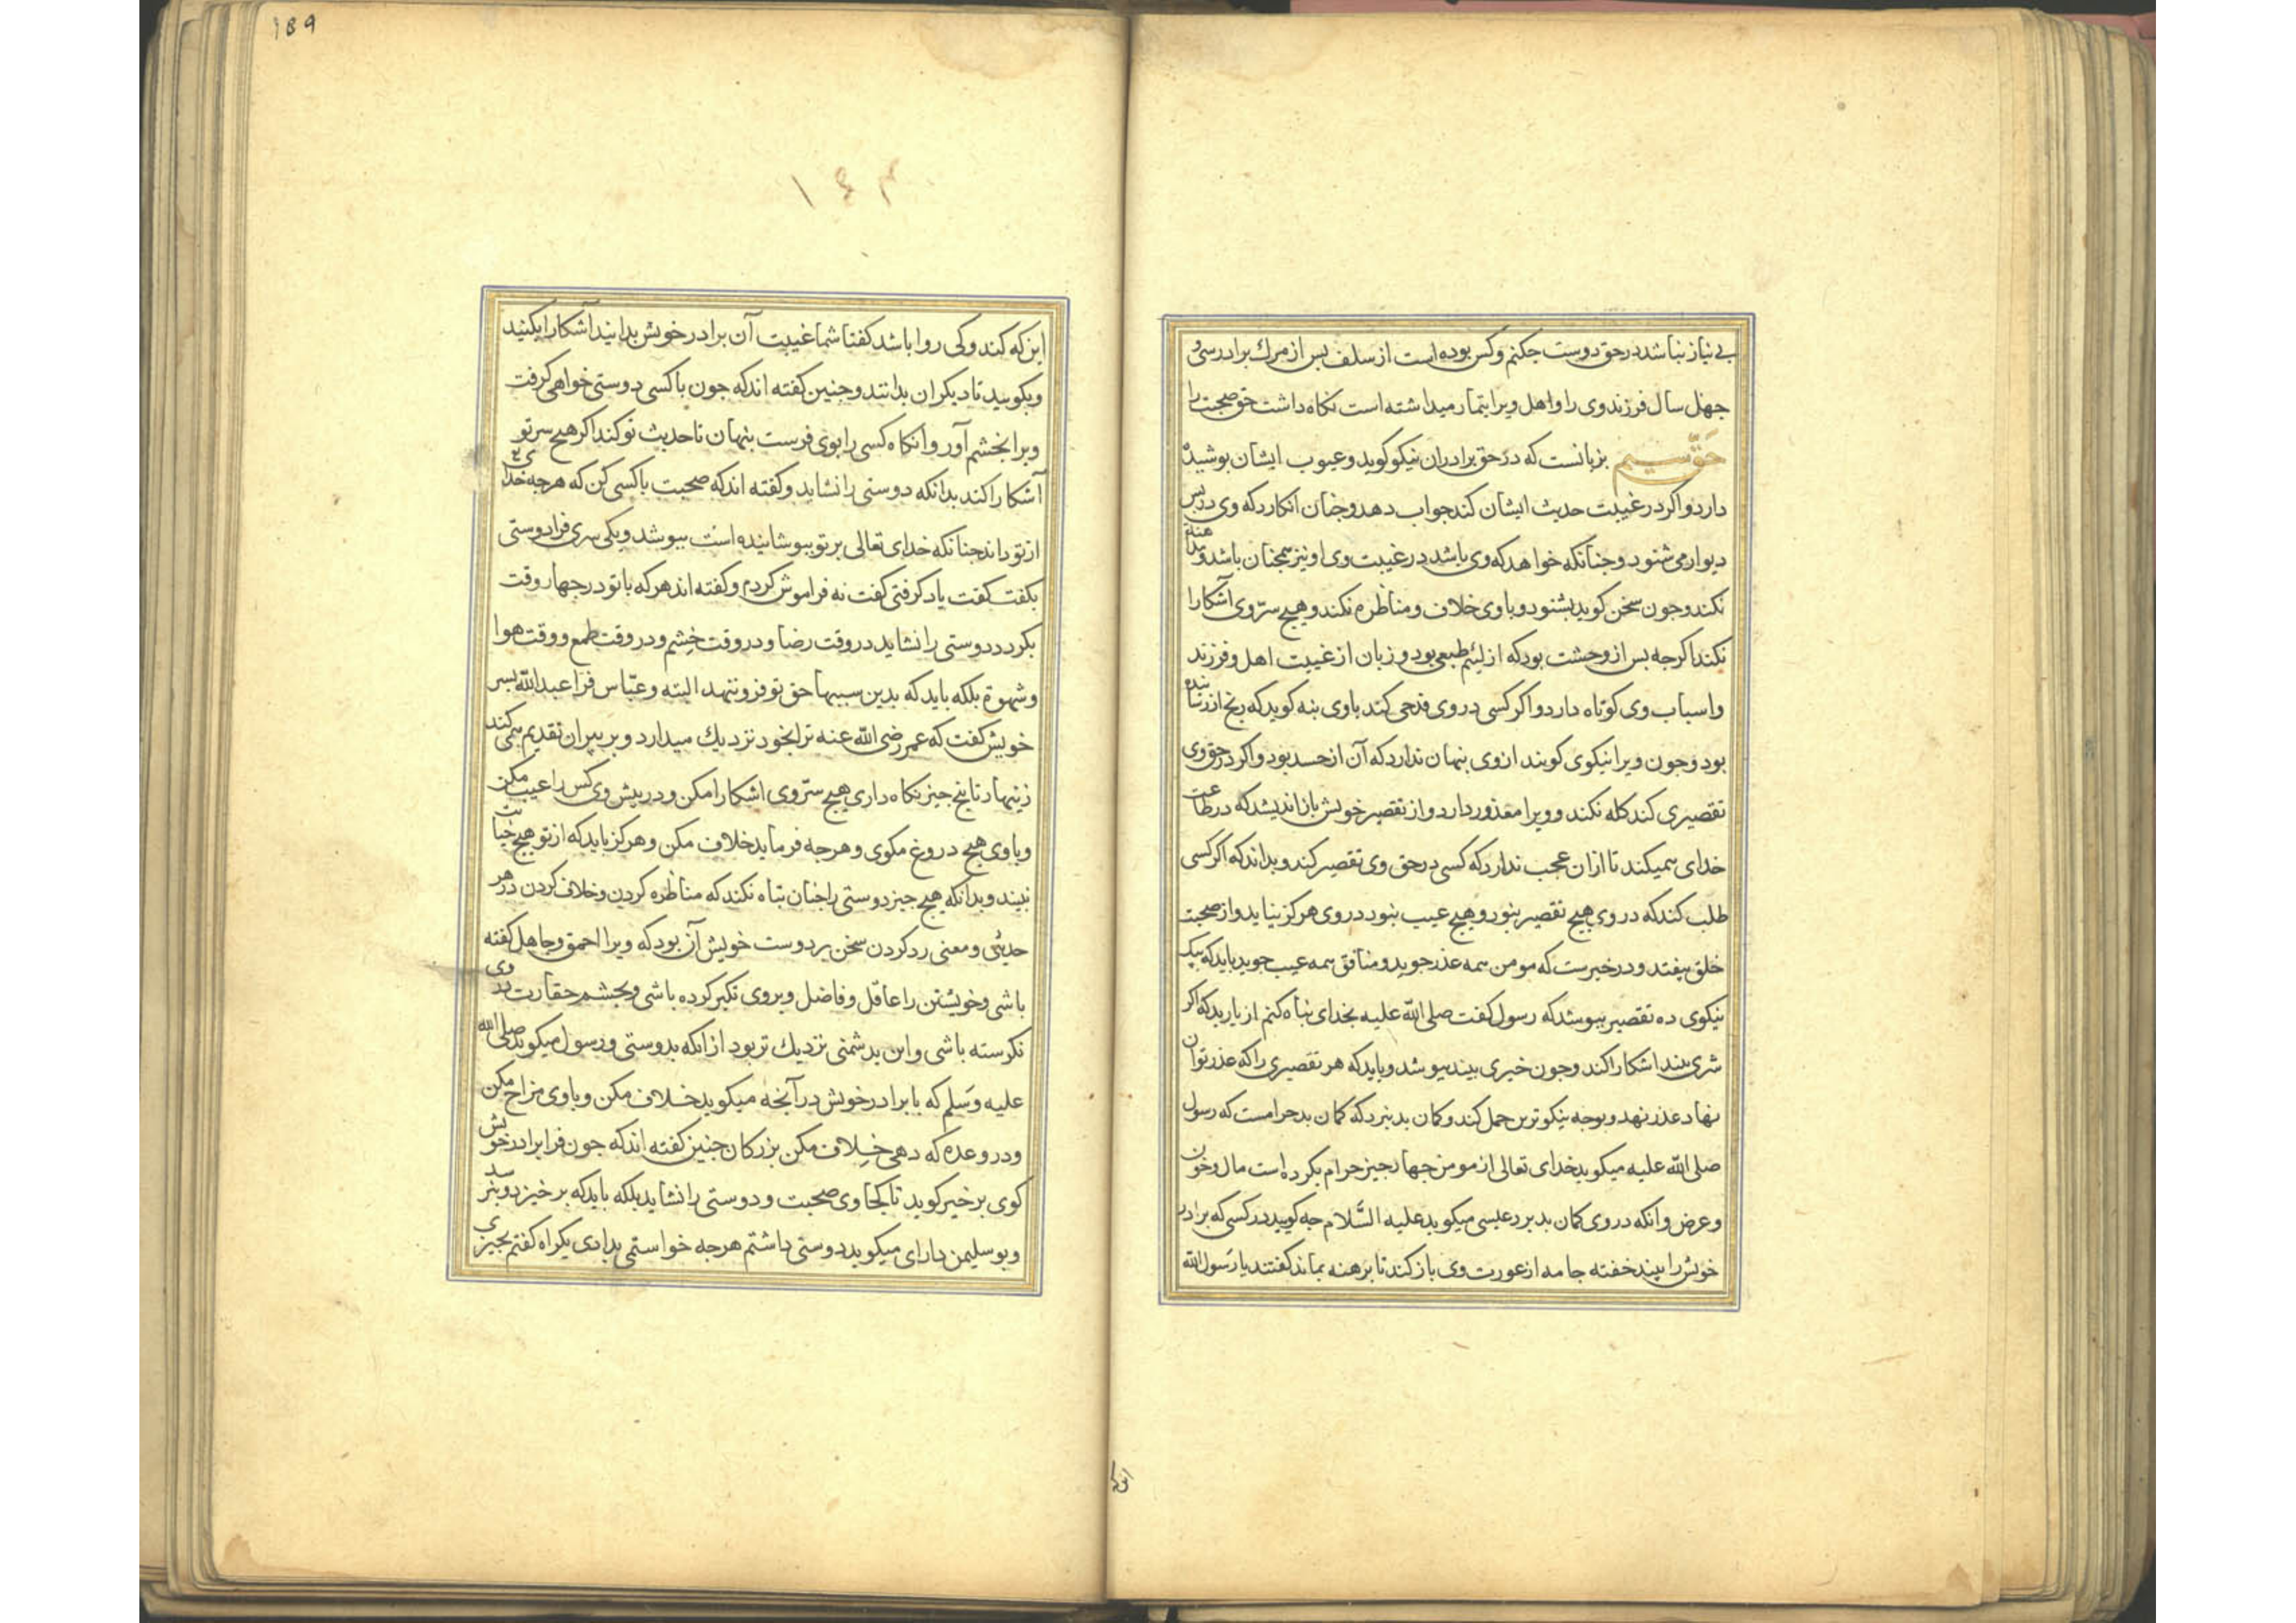 بی نیاز نباشد در حق دوست جکنم وکس بوده است از سلف بس از مرك برادر سی و
جهل سال فرزند وی را و اهل ویرا بتمار میداشته است نکاه داشت حق صحبت را
حق سیم بزبانست که در حق برادران نیکو کوید و عیوب ایشان بوشیده
دارد و اکر در غیبت حدیث ایشان کند جواب دهد و جنان انکارد که وی در بس
دیوار می شنود و جنانکه خواهد که وی باشد در غیبت وی او نیز همجنان باشد و مداهنه
نکند و جون سخن کوید بشنود و با وی خلاف و مناظره نکند و هیج سرّ وی آشکارا
نکند اکرجه بس از وحشت بود که از لئیم طبعی بود و زبان از غیبت اهل و فرزند
و اسباب وی کوتاه دارد و اکر کسی در وی قدحی کند باوی بنه کوید که رنج از رساننده
بود و جون ویرا نیکوی کویند از وی بنهان ندارد که آن از حسد بود و اکر در حق وی
تقصیری کند کله نکند و ویرا معذور دارد و از تقصیر خویش باز اندیشد که در طاعت
خدای همیکند تا ازان عجب ندارد که کسی در حق وی تقصیر کند و بداند که اکر کسی
طلب کند که در وی هیج تقصیر نبود و هیج عیب نبود در وی هرکز نیابد و از صحبت
خلق بیفتد و در خبرست که مومن همه عذر جوید و منافق همه عیب جوید باید که بیک
نیکوی ده تقصیر ببوشد که رسول کفت صلی الله علیه بخدای بناه کنم از یار بد که اکر
شری بیند اشکارا کند و جون خیری بیند ببوشد و باید که هر تقصیری را که عذر توان
نهاد عذر نهد و بوجه نیکوترین حمل کند و کمان بد نبرد که کمان بد حرامست که رسول
صلی الله علیه میکوید خدای تعالی از مومن جهار جیز حرام بکرده است مال و خون
و عرض و انکه در وی کمان بد برد عیسی میکوید علیه السّلام جه کویید در کسی که برادر
خویش را بیند خفته جامه از عورت وی باز کند تا برهنه بماند کفتند یا رسول الله
این که
189
۱۴۳
این که کند و کی روا باشد کفتا شما غیبت آن برادر خویش بدانید آشکارا بکنید
و بکویید تا دیکران بدانند و جنین کفته اند که جون با کسی دوستی خواهی کرفت
ویرا بخشم آور و آنکاه کسی را بوی فرست بنهان تا حدیث تو کند اکر هیج سر تو
آشکارا کند بدانکه دوستی را نشاید و کفته اند که صحبت با کسی کن که هرجه خدای
از تو داند جنانکه خدای تعالی بر تو ببوشانیده است ببوشد و یکی سری فرا دوستی
بکفت کفت یاد کرفتی کفت نه فراموش کردم و کفته اند هر که با تو در جهار وقت
بکردد دوستی را نشاید در وقت رضا و در وقت خشم و در وقت طمع و وقت هوا
و شهوة بلکه باید که بدین سببها حق تو فرو ننهد البته و عبّاس فرا عبد الله بسر
خویش کفت که عمر رضی الله عنه ترا بخود نزدیك میدارد و بر بیران تقدیم همی کند
زینهار تا بنج جیز نکاه داری هیج سرّ وی اشکارا مکن و در بیش وی کس را عیب مکن
و با وی هیج دروغ مکوی و هرجه فرماید خلاف مکن و هرکز باید که از تو هیج خیانت
نبیند و بدانکه هیج جیز دوستی را جنان تباه نکند که مناظره کردن و خلاف کردن در هر
حدیثی و معنی رد کردن سخن بر دوست خویش آن بود که ویرا احمق و جاهل کفته
باشی و خویشتن را عاقل و فاضل و بروی تکبر کرده باشی و بجشم حقارت در وی
نکرسته باشی و این بدشمنی نزدیك تر بود از انکه بدوستی و رسول میکوید صلی الله
علیه و سلم که با برادر خویش در آنجه میکوید خلاف مکن و با وی مزاح مکن
و در وعده که دهی خلاف مکن بزرکان جنین کفته اند که جون فرا برادر خویش
کوی برخیز کوید تا کجا وی صحبت و دوستی را نشاید بلکه باید که برخیزد و نبرسد
و بو سلیمن دارای میکوید دوستی داشتم هرجه خواستمی بدادی یکراه کفتم بجیزی